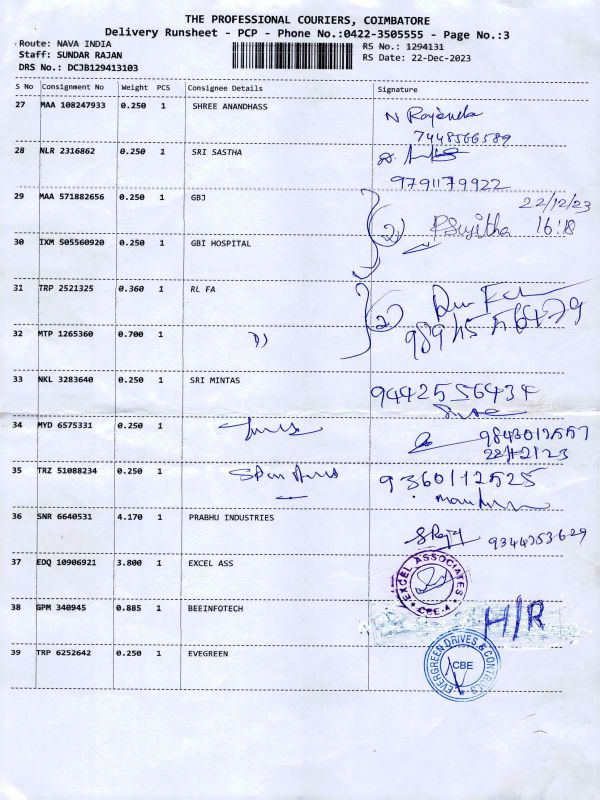 THE PROFESSIONAL COURIERS, COIMBATORE
Delivery Runsheet - PCP - Phone No.:0422-3505555 - Page No.:3
Route: NAVA INDIA
RS No.: 1294131
Staff: SUNDAR RAJAN
RS Date: 22-Dec-2023
DRS No.: DCJB129413103
S No Consignment No Weight PCS Consignee Details Signature
27 MAA 108247933 0.250 1 SHREE ANANDHASS
7448566589
28 NLR 2316862 0.250 1 SRI SASTHA
9791179922
29 MAA 571882656 0.250 1 GBJ
22/12/23
2 P Sujitha 16:18
30 IXM 505560920 0.250 1 GBI HOSPITAL
31 TRP 2521325 0.360 1 RL FA
2
32 MTP 1265360 0.700 1
33 NKL 3283640 0.250 1 SRI MINTAS
9442556434
34 MYD 6575331 0.250 1
9843012557
22/12/23
35 TRZ 51088234 0.250 1
9360112525
36 SNR 6640531 4.170 1 PRABHU INDUSTRIES
9344353629
37 EDQ 10906921 3.800 1 EXCEL ASS
EXCEL ASSOCIATES
CBE-4
38 GPM 340945 0.885 1 BEEINFOTECH
H/R
39 TRP 6252642 0.250 1 EVEGREEN
EVERGREEN DRIVES & CONTROLS
CBE